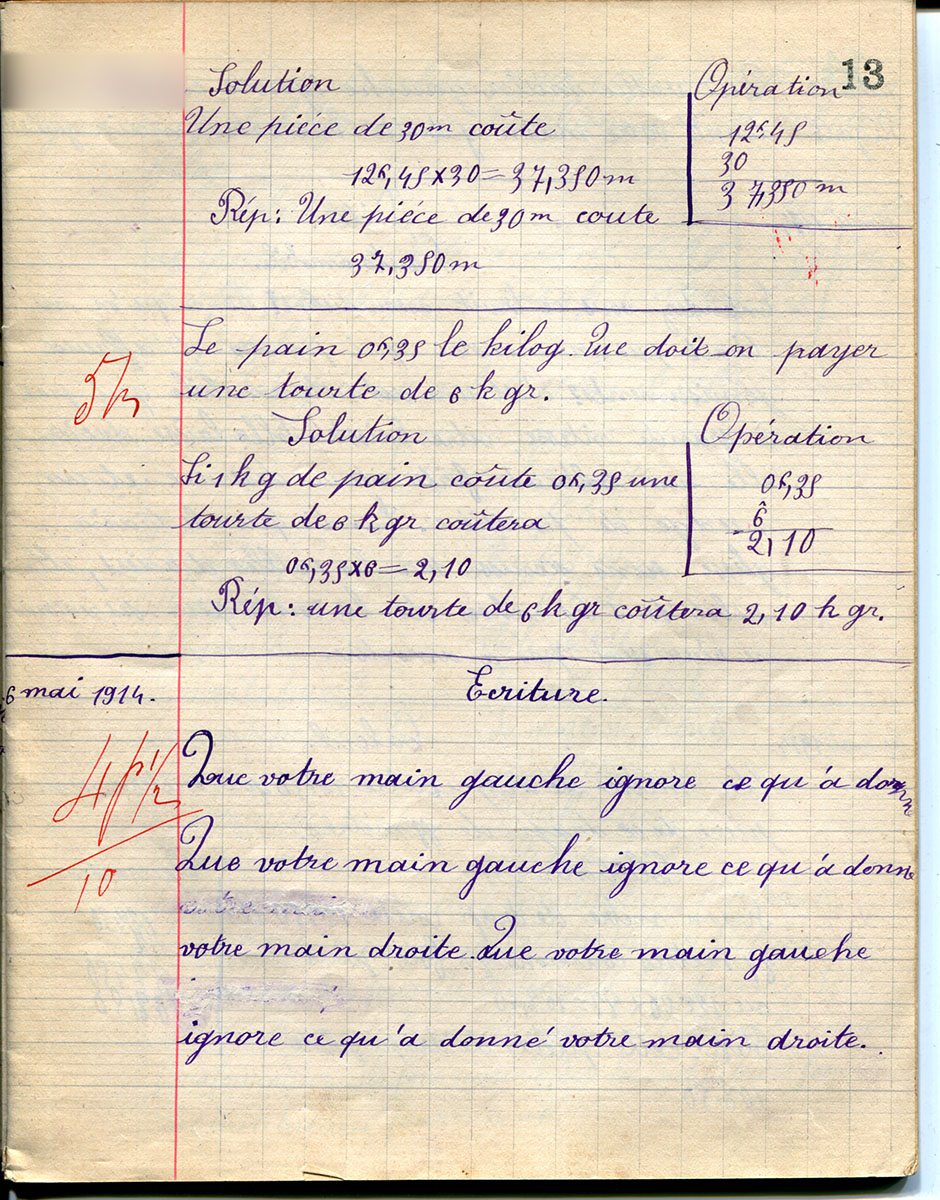 13
Solution
Opération
Une piéce de 30m coûte
12f,45
12f,45×30=37,350m
30
37,350m
Rép: Une piéce de 30m coute
37,350m
Le pain 0f,35 le kilog. Que doit-on payer
une tourte de 6 kgr.
Solution
Opération
Si 1kg de pain coûte 0f,35 une
0f,35
tourte de 6 kgr coûtera
6
2,10
0f,35×6=2,10
Rép: une tourte de 6kgr coûtera 2,10 kgr.
6 mai 1914.
Ecriture.
4 p 1/2
10
Que votre main gauche ignore ce qu'a donn
Que votre main gauche ignore ce qu'a donn
votre main droite. Que votre main gauche
ignore ce qu'a donné votre main droite.